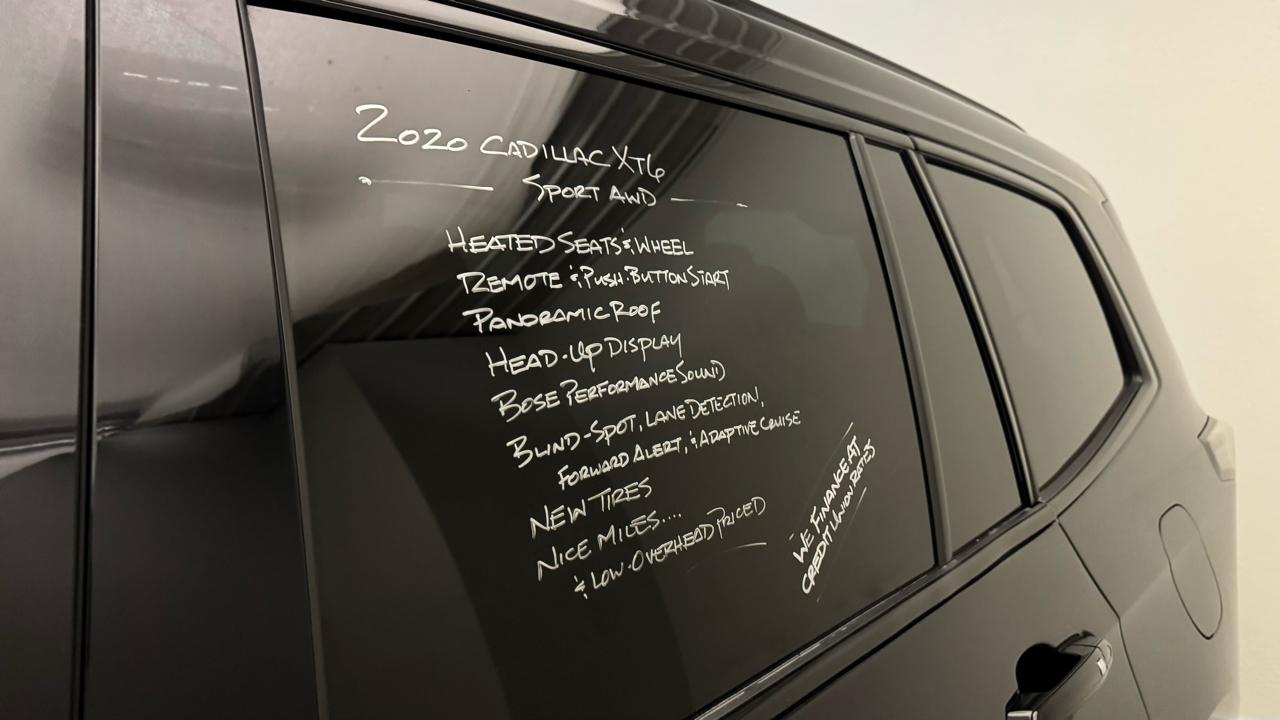 2020 CADILLAC XT6
SPORT AWD
HEATED SEATS & WHEEL
REMOTE & PUSH-BUTTON START
PANORAMIC ROOF
HEAD-UP DISPLAY
BOSE PERFORMANCE SOUND
BLIND-SPOT, LANE DETECTION,
FORWARD ALERT, & ADAPTIVE CRUISE
NEW TIRES
NICE MILES....
& LOW-OVERHEAD PRICED
WE FINANCE AT
CREDIT UNION RATES